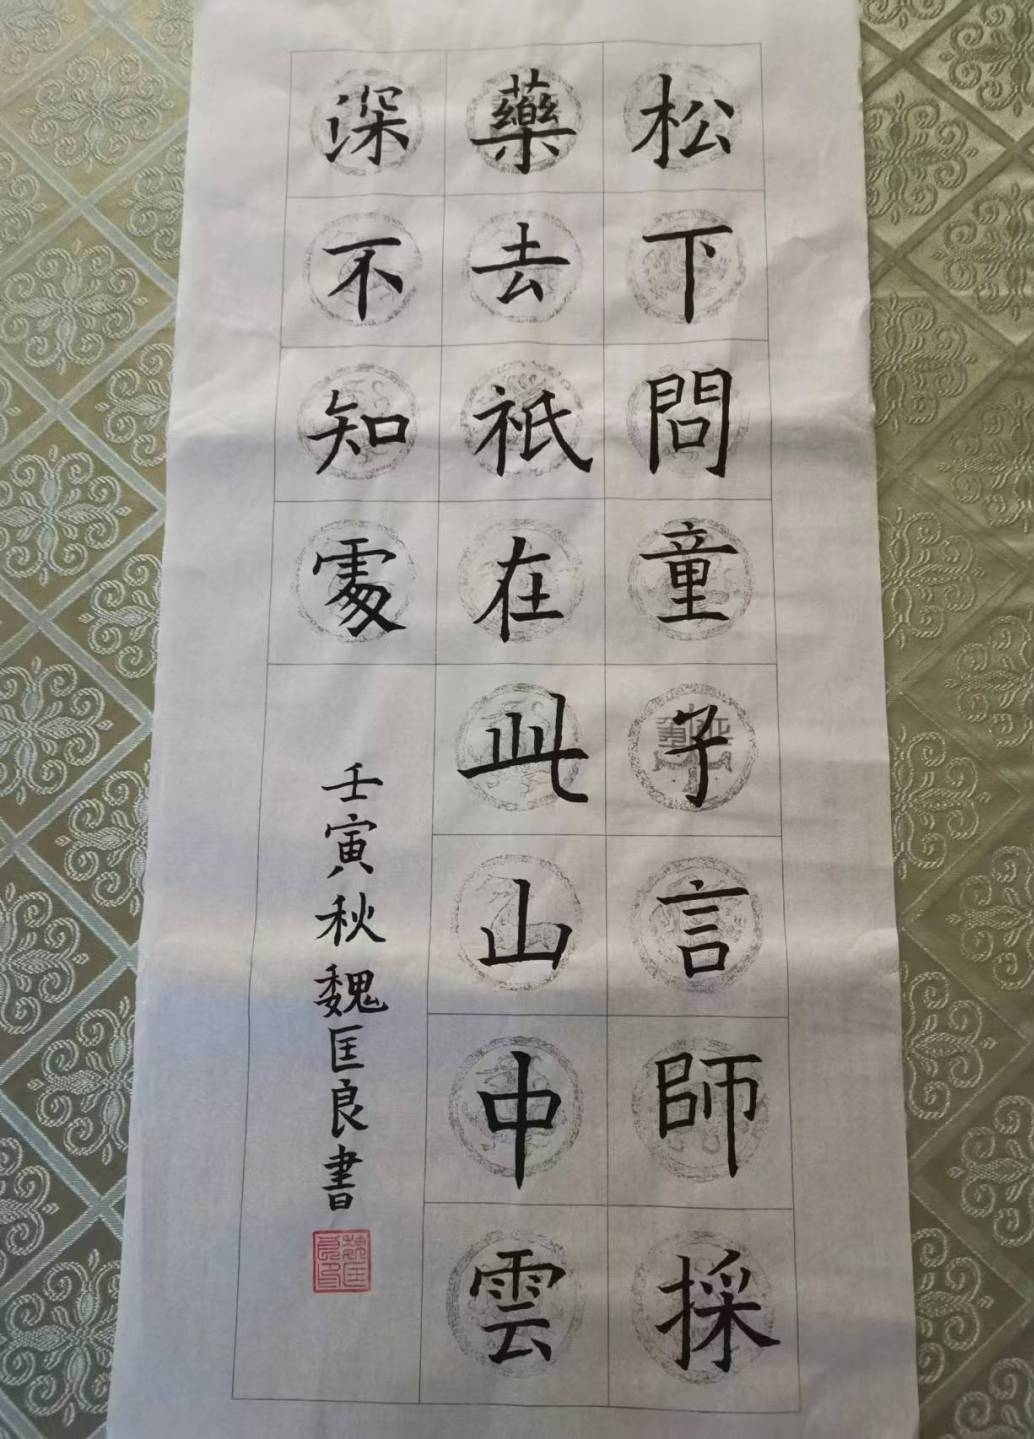 松下問童子言師採
藥去祇在此山中雲
深不知處
壬寅秋魏匡良書